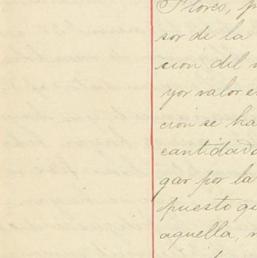 Flores, p
sor de la
cion del m
yor valor e
cion se ha
cantidad
gar por la
puesto qu
aquella, n